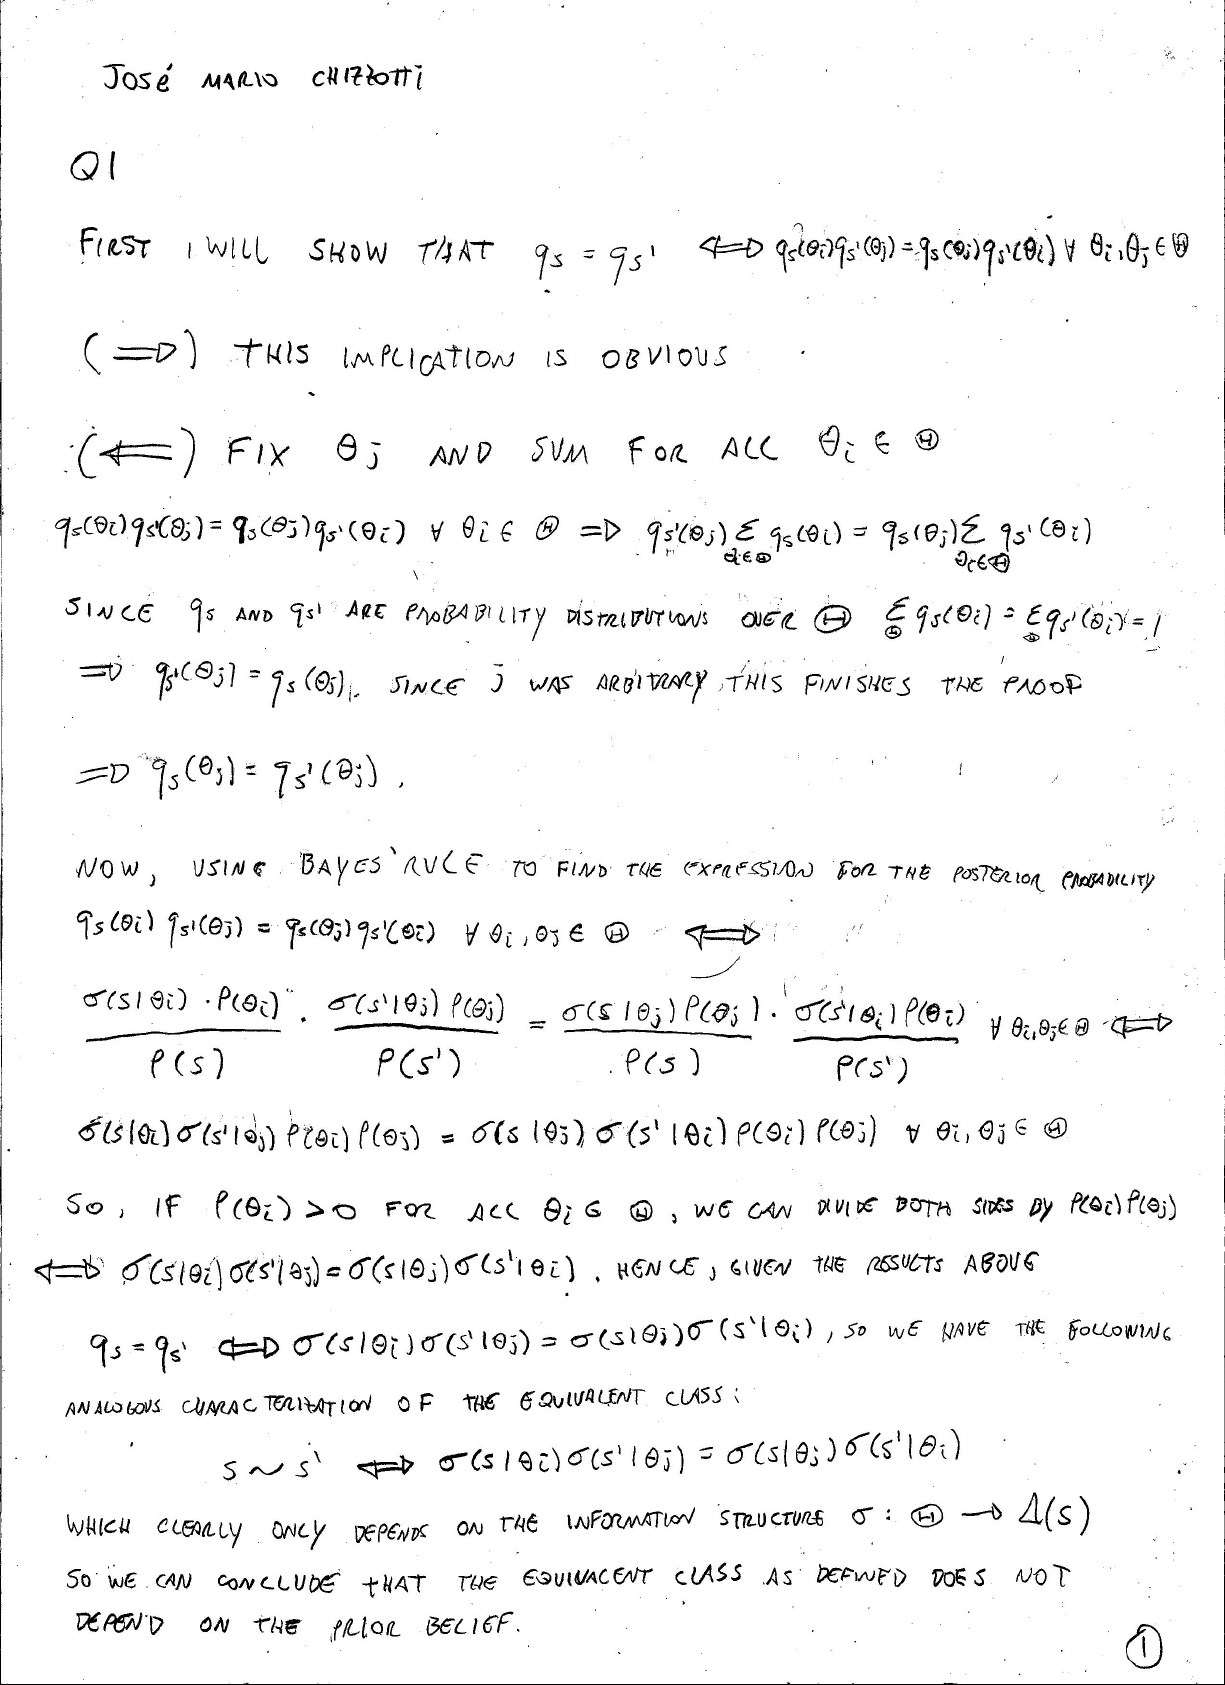 JOSÉ MARIO CHIZZOTTI
Q1
FIRST I WILL SHOW THAT qs = qs' ⟺ qs(θi)qs'(θj) = qs(θj)qs'(θi) ∀ θi,θj ∈ Θ
(⟹) THIS IMPLICATION IS OBVIOUS
(⟸) FIX θj AND SUM FOR ALL θi ∈ Θ
qs(θi)qs'(θj) = qs(θj)qs'(θi) ∀ θi ∈ Θ ⟹ qs'(θj) Σ_{θi∈Θ} qs(θi) = qs(θj) Σ_{θi∈Θ} qs'(θi)
SINCE qs AND qs' ARE PROBABILITY DISTRIBUTIONS OVER Θ Σ_Θ qs(θi) = Σ_Θ qs'(θi) = 1
⟹ qs'(θj) = qs(θj). SINCE j WAS ARBITRARY, THIS FINISHES THE PROOF
⟹ qs(θj) = qs'(θj).
NOW, USING BAYES' RULE TO FIND THE EXPRESSION FOR THE POSTERIOR PROBABILITY
qs(θi) qs'(θj) = qs(θj) qs'(θi) ∀ θi, θj ∈ Θ ⟺
σ(s|θi) · P(θi) / P(s) · σ(s'|θj) P(θj) / P(s') = σ(s|θj) P(θj) / P(s) · σ(s'|θi) P(θi) / P(s') ∀ θi,θj ∈ Θ ⟺
σ(s|θi) σ(s'|θj) P(θi) P(θj) = σ(s|θj) σ(s'|θi) P(θi) P(θj) ∀ θi, θj ∈ Θ
SO, IF P(θi) > 0 FOR ALL θi ∈ Θ, WE CAN DIVIDE BOTH SIDES BY P(θi) P(θj)
⟺ σ(s|θi) σ(s'|θj) = σ(s|θj) σ(s'|θi). HENCE, GIVEN THE RESULTS ABOVE
qs = qs' ⟺ σ(s|θi) σ(s'|θj) = σ(s|θj) σ(s'|θi), SO WE HAVE THE FOLLOWING
ANALOGOUS CHARACTERIZATION OF THE EQUIVALENT CLASS:
s ~ s' ⟺ σ(s|θi) σ(s'|θj) = σ(s|θj) σ(s'|θi)
WHICH CLEARLY ONLY DEPENDS ON THE INFORMATION STRUCTURE σ : Θ → Δ(s)
SO WE CAN CONCLUDE THAT THE EQUIVALENT CLASS AS DEFINED DOES NOT
DEPEND ON THE PRIOR BELIEF.
1